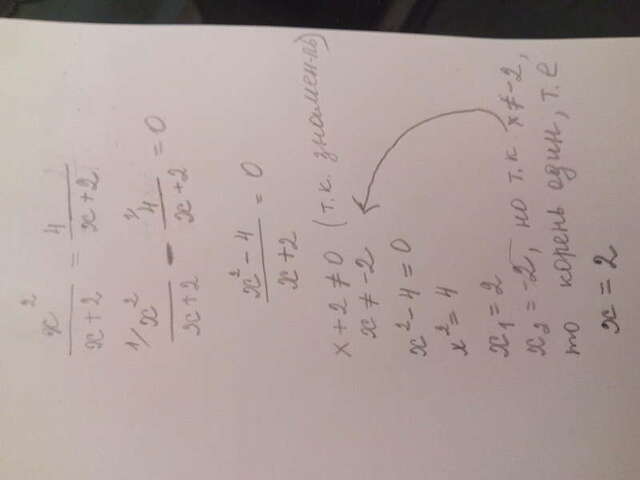 x²/(x+2) = 4/(x+2)
1/ x²/(x+2) - 1/ 4/(x+2) = 0
(x²-4)/(x+2) = 0
x+2 ≠ 0 (т.к. знамен-ль)
x ≠ -2
x²-4=0
x²=4
x₁=2
x₂=-2, но т.к x≠-2,
то корень один, т.е
x=2